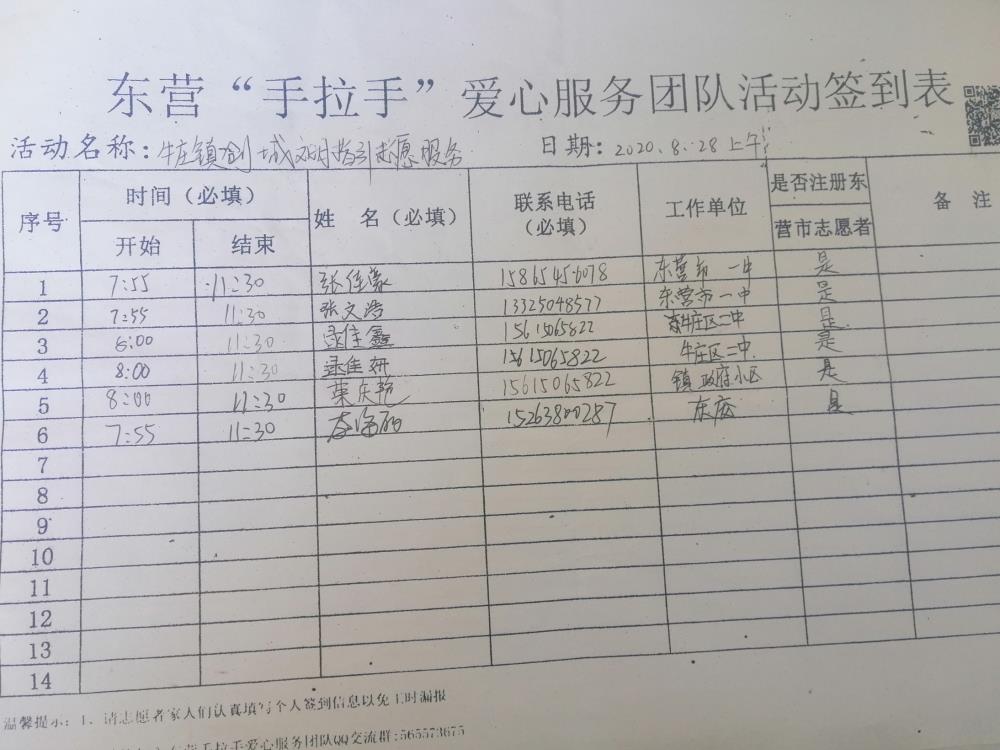 东营“手拉手”爱心服务团队活动签到表
活动名称：牛庄镇创城文明指引志愿服务 日期：2020.8.28上午
序号 时间（必填） 姓 名（必填） 联系电话（必填） 工作单位 是否注册东营市志愿者 备 注
开始 结束
1 7:55 11:30 张佳豪 15865456078 东营市一中 是
2 7:55 11:30 张文浩 13325048577 东营市一中 是
3 8:00 11:30 逯佳鑫 15615065822 牛庄区二中 是
4 8:00 11:30 逯佳妍 15615065822 牛庄区二中 是
5 8:00 11:30 15615065822 镇政府小区 是
6 7:55 11:30 15263800287 是
7
8
9
10
11
12
13
14
温馨提示：1、请志愿者家人们认真填写个人签到信息以免工时漏报
手拉手爱心服务团队QQ交流群:565573675